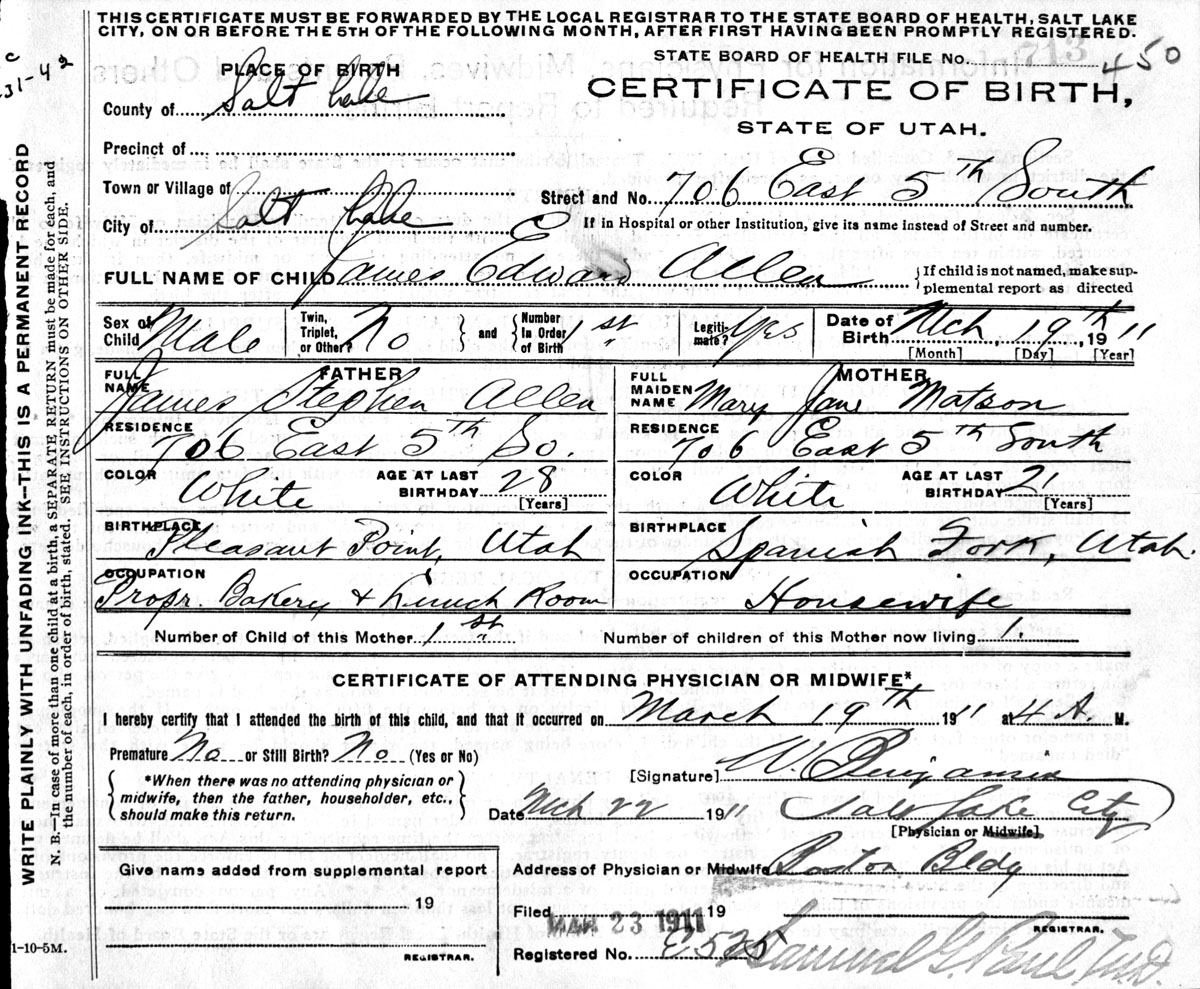 THIS CERTIFICATE MUST BE FORWARDED BY THE LOCAL REGISTRAR TO THE STATE BOARD OF HEALTH, SALT LAKE
CITY, ON OR BEFORE THE 5TH OF THE FOLLOWING MONTH, AFTER FIRST HAVING BEEN PROMPTLY REGISTERED.
STATE BOARD OF HEALTH FILE No. 450
PLACE OF BIRTH
CERTIFICATE OF BIRTH,
County of Salt Lake
STATE OF UTAH.
Precinct of
Town or Village of
Street and No. 706 East 5th South
City of Salt Lake
If in Hospital or other Institution, give its name instead of Street and number.
FULL NAME OF CHILD James Edward Allen {If child is not named, make sup-
plemental report as directed
Sex of Child Male Twin, Triplet, or Other? No } and { Number In Order of Birth 1st Legiti-mate? Yes Date of Birth Mch 19th, 1911
[Month] [Day] [Year]
FULL NAME FATHER James Stephen Allen
FULL MAIDEN NAME MOTHER Mary Jane Matson
RESIDENCE 706 East 5th So.
RESIDENCE 706 East 5th South
COLOR White AGE AT LAST BIRTHDAY 28 [Years]
COLOR White AGE AT LAST BIRTHDAY 2 [Years]
BIRTHPLACE Pleasant Point, Utah
BIRTHPLACE Spanish Fork, Utah.
OCCUPATION Propr. Bakery & Lunch Room
OCCUPATION Housewife
Number of Child of this Mother 1st Number of children of this Mother now living 1
CERTIFICATE OF ATTENDING PHYSICIAN OR MIDWIFE*
I hereby certify that I attended the birth of this child, and that it occurred on March 19th 1911 at 4 A. M.
Premature? No or Still Birth? No (Yes or No)
[Signature] W. Benjamin
{ *When there was no attending physician or
midwife, then the father, householder, etc.,
should make this return. }
Date Mch 22 1911 Salt Lake City
[Physician or Midwife]
Give name added from supplemental report
19
REGISTRAR.
Address of Physician or Midwife Boston Bldg
Filed MAR 23 1911 19
REGISTRAR.
Registered No. E525 Samuel G. Paul M.D.
1-10-5M.
WRITE PLAINLY WITH UNFADING INK--THIS IS A PERMANENT RECORD
N. B.--In case of more than one child at a birth, a SEPARATE RETURN must be made for each, and
the number of each, in order of birth, stated. SEE INSTRUCTIONS ON OTHER SIDE.